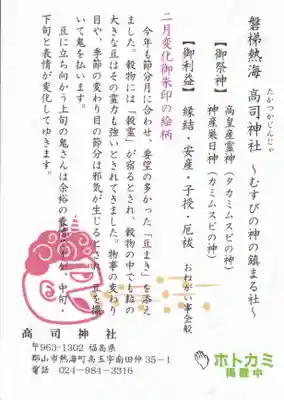 磐梯熱海 高司神社 ～むすびの神の鎮まる社～
たかつかじんじゃ
【御祭神】 高皇産霊神（タカミムスビの神）
神産巣日神（カミムスビの神）
【御利益】 縁結・安産・子授・厄祓 おねがい事全般
二月変化御朱印の絵柄
今年も節分月に合わせ、要望の多かった「豆まき」を添え
ました。穀物には「穀霊」が宿るとされ、穀物の中でも粒の
大きな豆はその霊力も強いとされてきました。物事の変わり
目や、季節の変わり目の節分は邪気が生じるとされ豆を撒
いて鬼を払います。
豆に立ち向かう上旬の鬼さんは余裕の表情ですが、中旬・
下旬と表情が変化してゆきます。
高司神社
〒963-1302 福島県
郡山市熱海町高玉字南田仲35-1
電話 024-984-3316
ホトカミ
掲載中